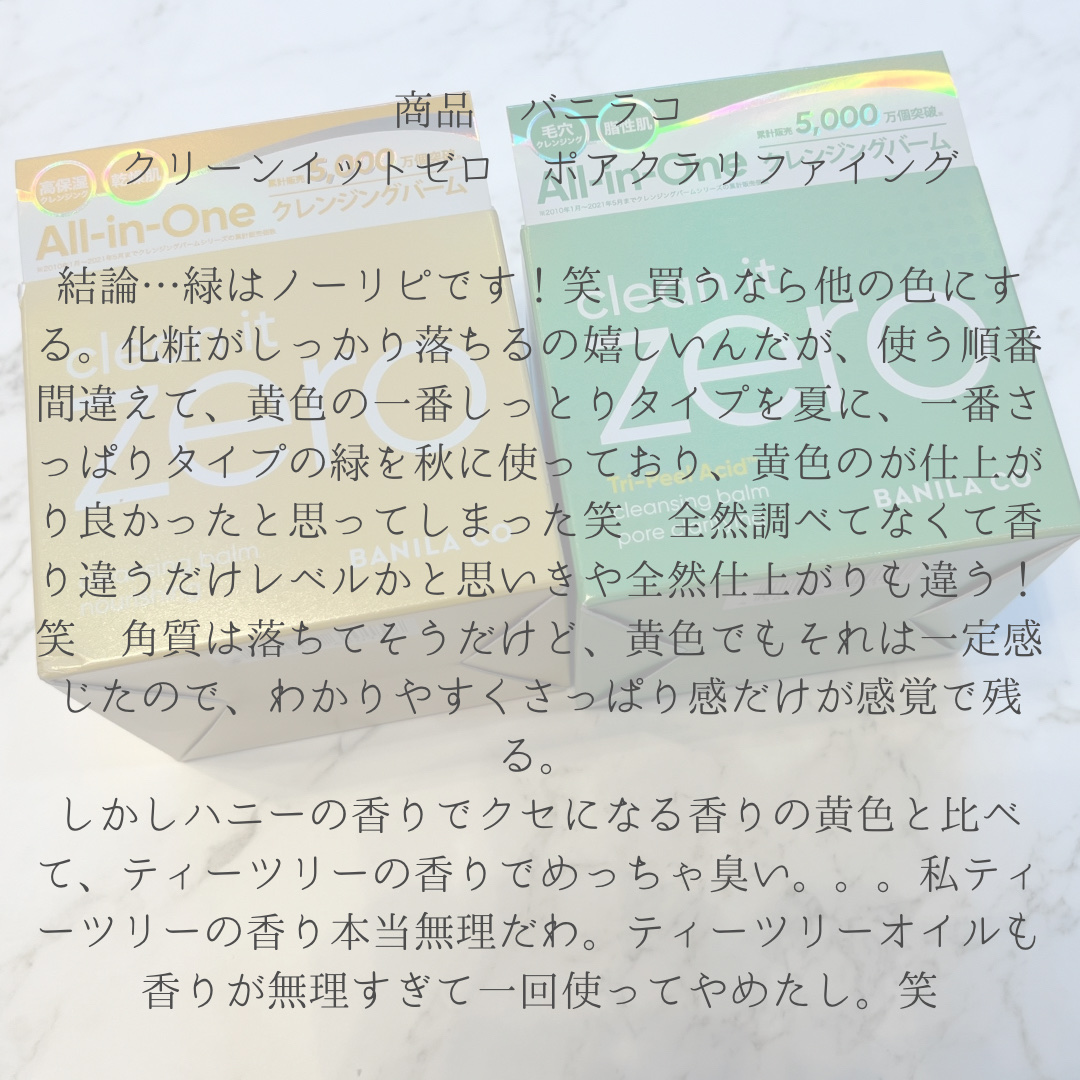 商品 バニラコ
クリーンイットゼロ ポアクラリファイング
結論…緑はノーリピです！笑 買うなら他の色にす
る。化粧がしっかり落ちるの嬉しいんだが、使う順番
間違えて、黄色の一番しっとりタイプを夏に、一番さ
っぱりタイプの緑を秋に使っており、黄色のが仕上が
り良かったと思ってしまった笑 全然調べてなくて香
り違うだけレベルかと思いきや全然仕上がりも違う！
笑 角質は落ちてそうだけど、黄色でもそれは一定感
じたので、わかりやすくさっぱり感だけが感覚で残
る。
しかしハニーの香りでクセになる香りの黄色と比べ
て、ティーツリーの香りでめっちゃ臭い。。。私ティ
ーツリーの香り本当無理だわ。ティーツリーオイルも
香りが無理すぎて一回使ってやめたし。笑
高保湿
クレンジング
累計販売 5,000万個突破
All-in-One
クレンジングバーム
clean it
zero
BANILA CO
cleansing balm
毛穴
クレンジング
脂性肌
累計販売 5,000万個突破
All-in-One
クレンジングバーム
clean it
zero
Tri-Peel Acid
cleansing balm
BANILA CO